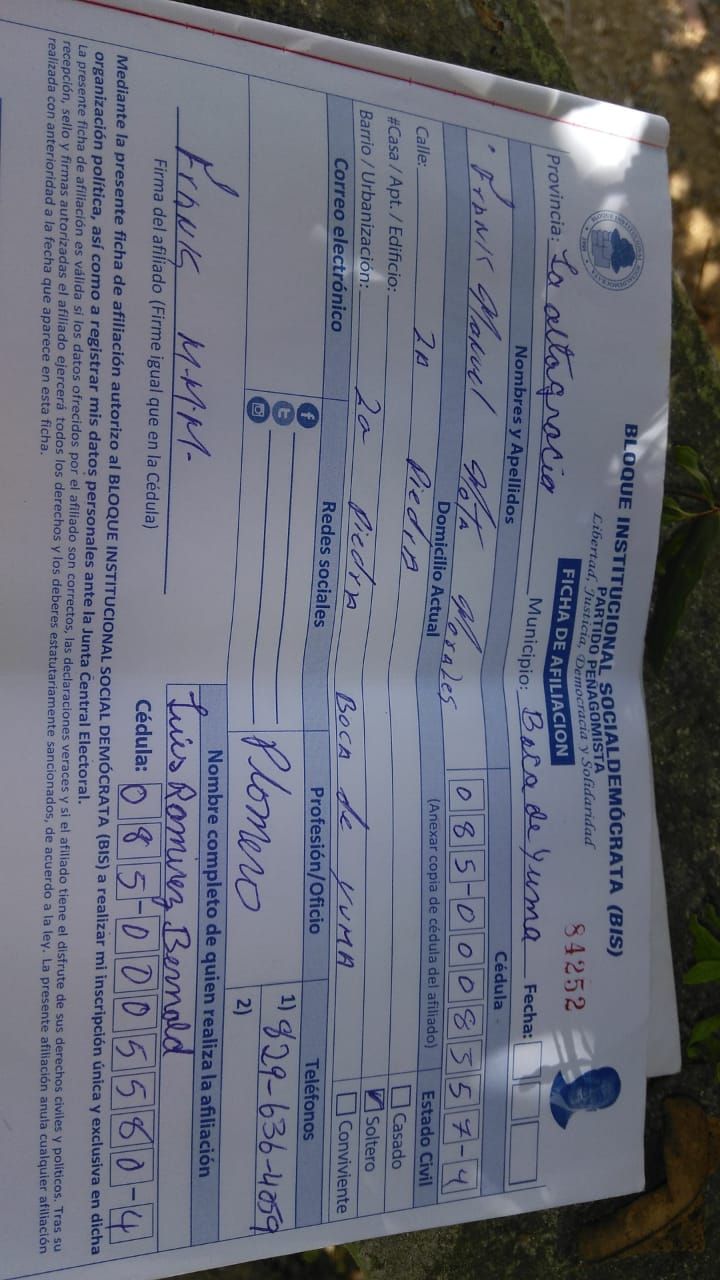 BLOQUE INSTITUCIONAL SOCIALDEMÓCRATA (BIS)
PARTIDO PEÑAGOMISTA
Libertad, Justicia, Democracia y Solidaridad
FICHA DE AFILIACION
84252
Provincia: La altagracia Municipio: Boca de Yuma Fecha:
Nombres y Apellidos Cédula
Franis Manuel Mota Morales 085-0008357-4
Domicilio Actual (Anexar copia de cédula del afiliado) Estado Civil
Calle: 2a Piedra Casado
#Casa / Apt. / Edificio: Soltero
Barrio / Urbanización: 2a Piedra Boca de Yuma Conviviente
Correo electrónico Redes sociales Profesión/Oficio Teléfonos
Plomero 1) 829-636-4059
2)
Nombre completo de quien realiza la afiliación
Franis M.M.M. Luis Ramirez Bernald
Firma del afiliado (Firme igual que en la Cédula) Cédula: 085-0005580-4
Mediante la presente ficha de afiliación autorizo al BLOQUE INSTITUCIONAL SOCIAL DEMÓCRATA (BIS) a realizar mi inscripción única y exclusiva en dicha
organización política, así como a registrar mis datos personales ante la Junta Central Electoral.
La presente ficha de afiliación es válida si los datos ofrecidos por el afiliado son correctos, las declaraciones veraces y si el afiliado tiene el disfrute de sus derechos civiles y políticos. Tras su
recepción, sello y firmas autorizadas el afiliado ejercerá todos los derechos y los deberes estatutariamente sancionados, de acuerdo a la ley. La presente afiliación anula cualquier afiliación
realizada con anterioridad a la fecha que aparece en esta ficha.